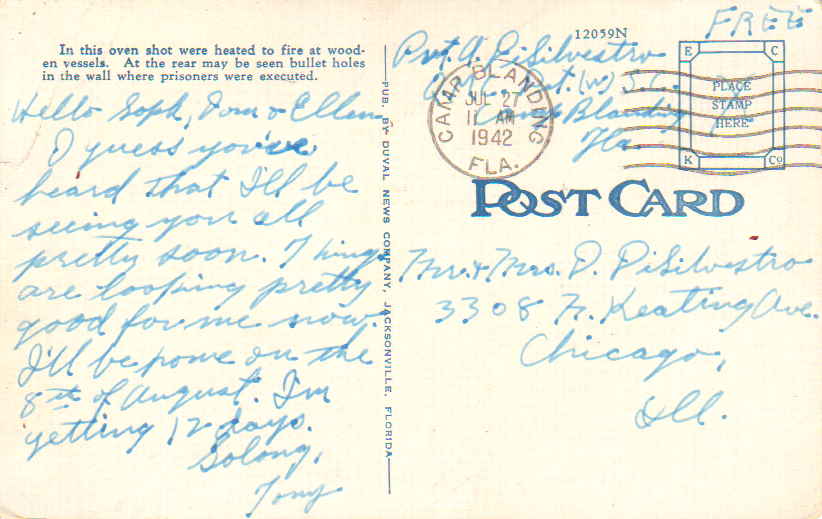 In this oven shot were heated to fire at wood-
en vessels. At the rear may be seen bullet holes
in the wall where prisoners were executed.
Hello Soph, Dom & Ellen
I guess you've
heard that I'll be
seeing you all
pretty soon. Things
are looping pretty
good for me now.
I'll be pome on the
8th of August. I'm
getting 12 days.
Solong,
Tony
PUB. BY DUVAL NEWS COMPANY, JACKSONVILLE, FLORIDA
12059N
FREE
Pvt. A. DiSilvestro
Camp Blanding
Fla.
CAMP BLANDING
JUL 27
11 AM
1942
FLA.
E C
PLACE
STAMP
HERE
K Co
POST CARD
Mr. & Mrs. D. DiSilvestro
3308 N. Keating Ave.
Chicago,
Ill.